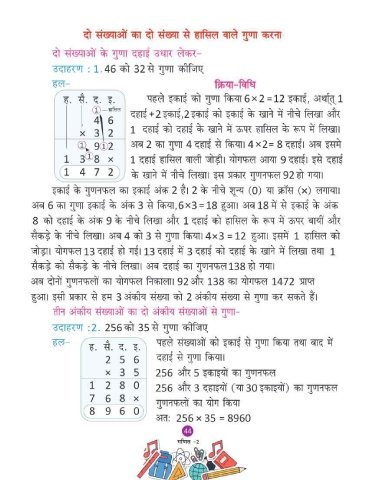 दो संख्याओं का दो संख्या से हासिल वाले गुणा करना
दो संख्याओं के गुणा दहाई उधार लेकर–
उदाहरण : 1. 46 को 32 से गुणा कीजिए
हल–
क्रिया-विधि
ह. सै. द. इ.
① ①
4 6
× 3 2
① 9 ② 2
1 3 8 ×
1 4 7 2
पहले इकाई को गुणा किया 6 × 2 = 12 इकाई, अर्थात् 1
दहाई +2 इकाई, 2 इकाई को इकाई के खाने में नीचे लिखा और
1 दहाई को दहाई के खाने में ऊपर हासिल के रूप में लिखा।
अब 2 का गुणा 4 दहाई से किया। 4 × 2 = 8 दहाई। अब इसमे
1 दहाई हासिल वाली जोड़ी। योगफल आया 9 दहाई। इसे दहाई
के खाने में नीचे लिखा। इस प्रकार गुणनफल 92 हो गया।
इकाई के गुणनफल का इकाई अंक 2 है। 2 के नीचे शून्य (0) या क्रॉस (×) लगाया।
अब 6 का गुणा इकाई के अंक 3 से किया, 6 × 3 = 18 हुआ। अब 18 में से इकाई के अंक
8 को दहाई के अंक 9 के नीचे लिखा और 1 दहाई को हासिल के रूप में ऊपर बायीं और
सैकड़े के नीचे लिखा। अब 4 को 3 से गुणा किया। 4 × 3 = 12 हुआ। इसमें 1 हासिल को
जोड़ा। योगफल 13 दहाई हो गई। 13 दहाई में 3 दहाई को दहाई के खाने में लिखा तथा 1
सैकड़े को सैकड़े के नीचे लिखा। अब दहाई का गुणनफल 138 हो गया।
अब दोनों गुणनफलों का योगफल निकाला। 92 और 138 का योगफल 1472 प्राप्त
हुआ। इसी प्रकार से हम 3 अंकीय संख्या को 2 अंकीय संख्या से गुणा कर सकते हैं।
तीन अंकीय संख्याओं का दो अंकीय संख्याओं से गुणा–
उदाहरण : 2. 256 को 35 से गुणा कीजिए
हल–
ह. सै. द. इ.
2 5 6
× 3 5
1 2 8 0
7 6 8 ×
8 9 6 0
पहले संख्याओं को इकाई से गुणा किया तथा बाद में
दहाई से गुणा किया।
256 और 5 इकाइयों का गुणनफल
256 और 3 दहाइयों (या 30 इकाइयों) का गुणनफल
गुणनफलों का योग किया
अत: 256 × 35 = 8960
44
गणित -2